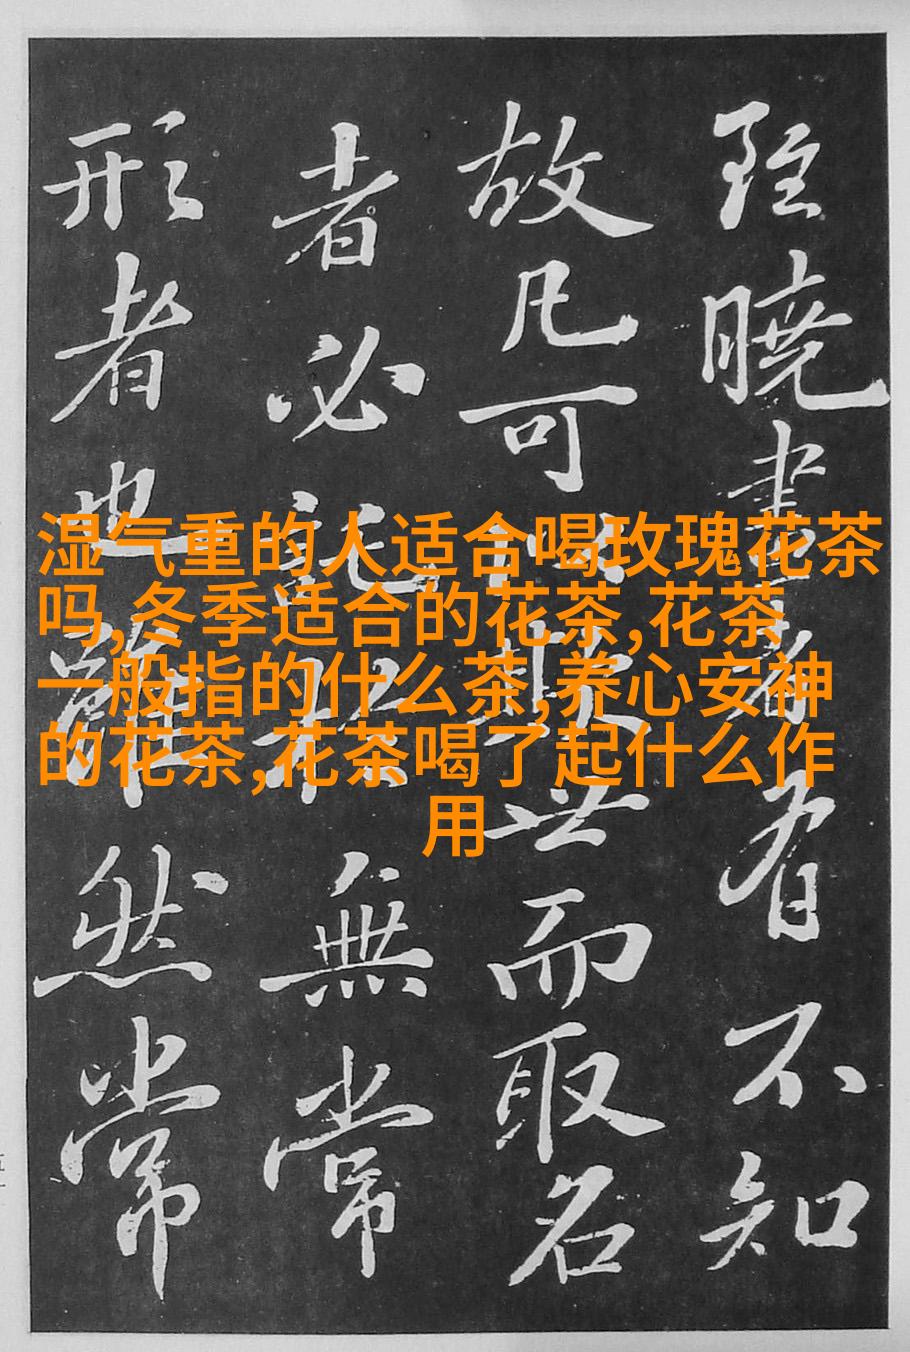 湿气重的人适合喝玫瑰花茶
吗,冬季适合的花茶,花茶
一般指的什么茶,养心安神
的花茶,花茶喝了起什么作
用
雖曉畫者有不知
故凡可以欺世而取名
者必託於無常
形者也雖然常